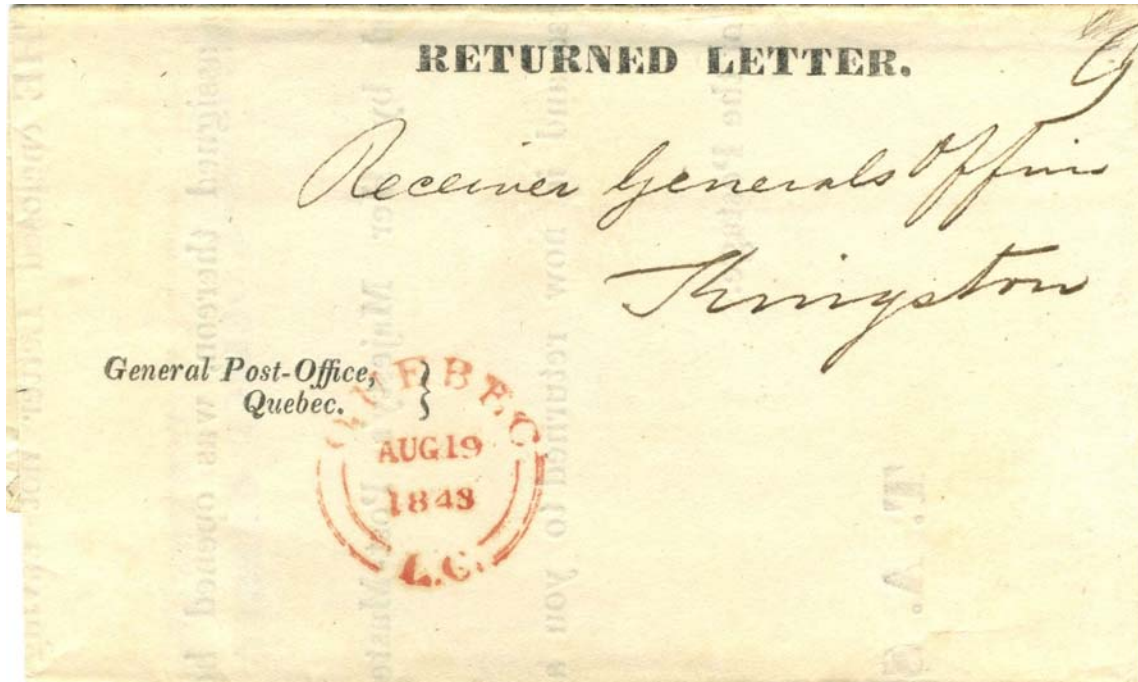 RETURNED LETTER.
Receiver Generals Office
Kingston
General Post-Office,
Quebec.
QUEBEC
AUG 19
1843
L.C.